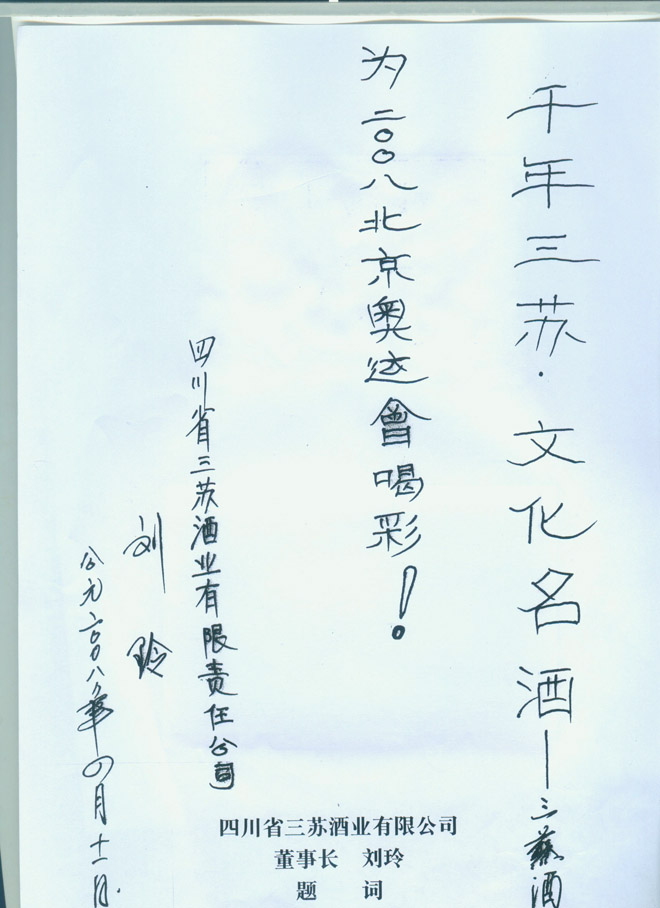 千年三苏·文化名酒——三蘇酒
为二〇〇八北京奥运會喝彩！
四川省三苏酒业有限责任公司
刘玲
公元二〇〇八年四月十一日
四川省三苏酒业有限公司
董事长 刘玲
题 词